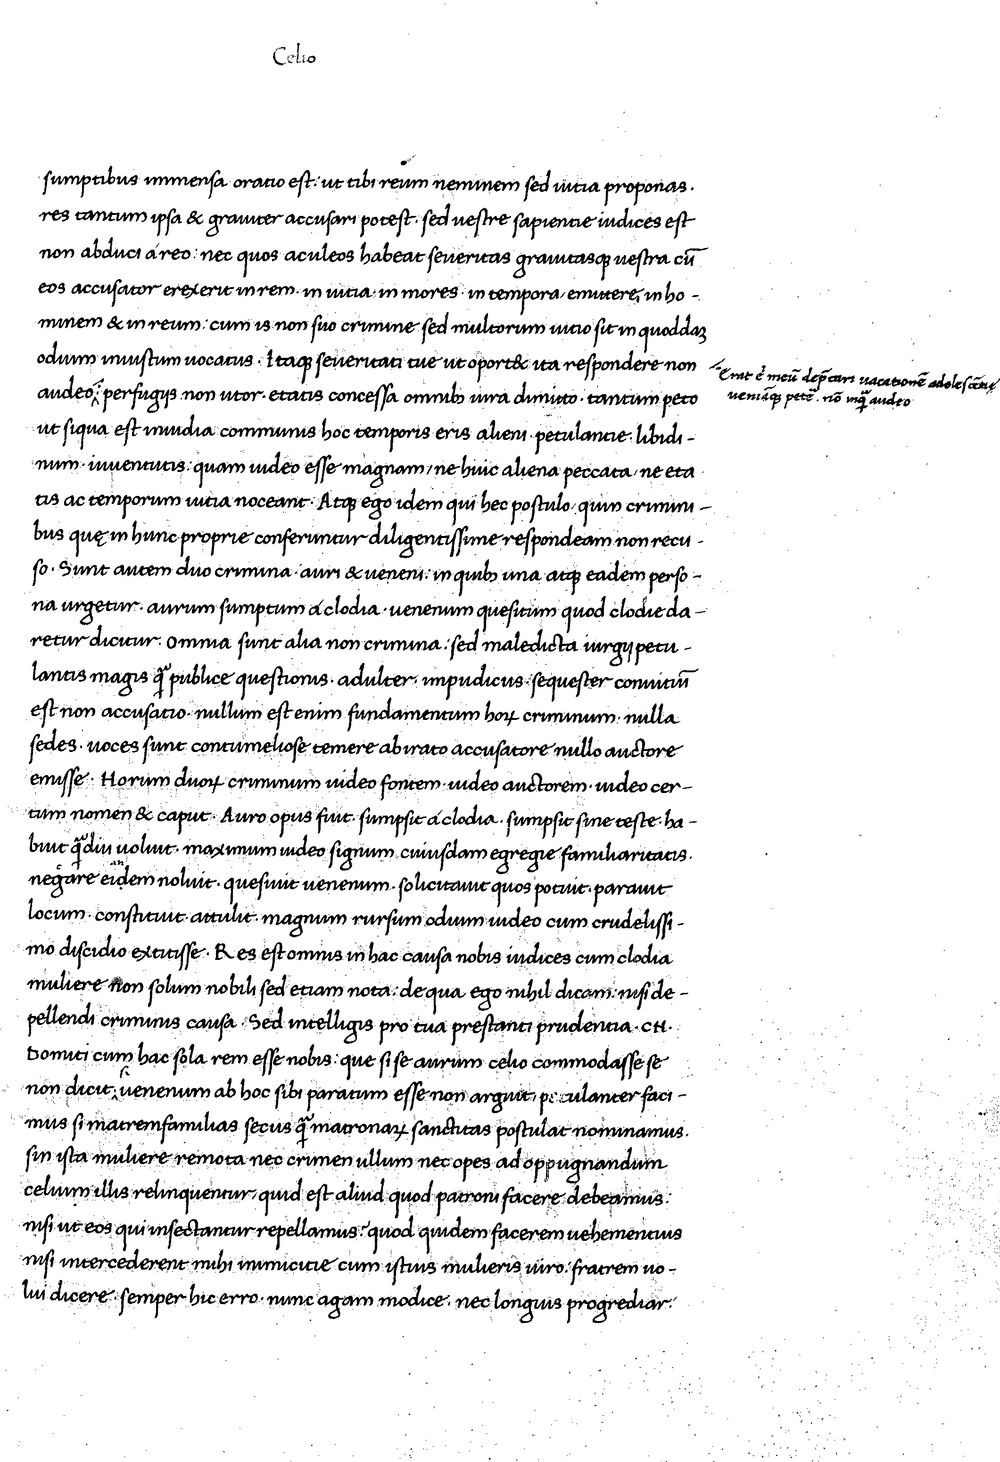 Celio
sumptibus immensa oratio est: ut tibi reum neminem sed uitia proponas.
res tantum ipsa & grauiter accusari potest. sed uestre sapientie iudices est
non abduci á reo: nec quos aculeos habeat seueritas grauitasqꝫ uestra cū
eos accusator erexerit in rem. in uitia. in mores. in tempora, emittere, in ho-
minem & in reum: cum is non suo crimine sed multorum uitio sit in quoddaꝫ
odium iniustum uocatus. Itaqꝫ seueritati tue ut oport& ita respondere non
audeo, perfugijs non utor. etatis concessa omnibꝫ iura dimitto. tantum peto
Erat .n. meū dep̄cari uacationē adolescētie
ueniāqꝫ petē. nō inquā audeo
ut siqua est inuidia communis hoc temporis eris alieni. petulantie. libidi-
num. iuuentutis: quam uideo esse magnam, ne huic aliena peccata, ne eta
tis ac temporum uitia noceant. Atqꝫ ego idem qui hec postulo, quin crimini-
bus quę in hunc proprie conferuntur diligentissime respondeam non recu-
so. Sunt autem duo crimina. auri & ueneni: in quibꝫ una atqꝫ eadem perso-
na urgetur. aurum sumptum á clodia. uenenum quesitum quod clodie da-
retur dicitur. omnia sunt alia non crimina: sed maledicta iurgij petu-
lantis magis q̄ publice questionis. adulter. impudicus. sequester conuitiū
est non accusatio. nullum est enim fundamentum hoꝝ criminum. nulla
sedes. uoces sunt contumeliose temere ab irato accusatore nullo auctore
emisse. Horum duoꝝ criminum uideo fontem. uideo auctorem. uideo cer-
tum nomen & caput. Auro opus fuit. sumpsit á clodia. sumpsit sine teste. ha-
buit q̄ diu uoluit. maximum uideo signum cuiusdam egregie familiaritatis.
negare eidem noluit. quesiuit uenenum. solicitauit quos potuit. parauit
locum. constituit. attulit. magnum rursum odium uideo cum crudelissi-
mo discidio extitisse. Res est omnis in hac causa nobis iudices cum clodia
muliere non solum nobili sed etiam nota: de qua ego nihil dicam: nisi de-
pellendi criminis causa. Sed intelligis pro tua prestanti prudentia. CN.
Domiti cum hac sola rem esse nobis: que si se aurum celio commodasse se
non dicit, uenenum ab hoc sibi paratum esse non arguit, petulanter faci-
mus si matremfamilias secus q̄ matronaꝝ sanctitas postulat nominamus.
sin ista muliere remota nec crimen ullum nec opes ad oppugnandum
celium illis relinquentur, quid est aliud quod patroni facere debeamus:
nisi ut eos qui insectantur repellamus: quod quidem facerem uehementius
nisi intercederent mihi inimicitie cum istius mulieris uiro. fratrem uo-
lui dicere. semper hic erro. nunc agam modice. nec longius progrediar: